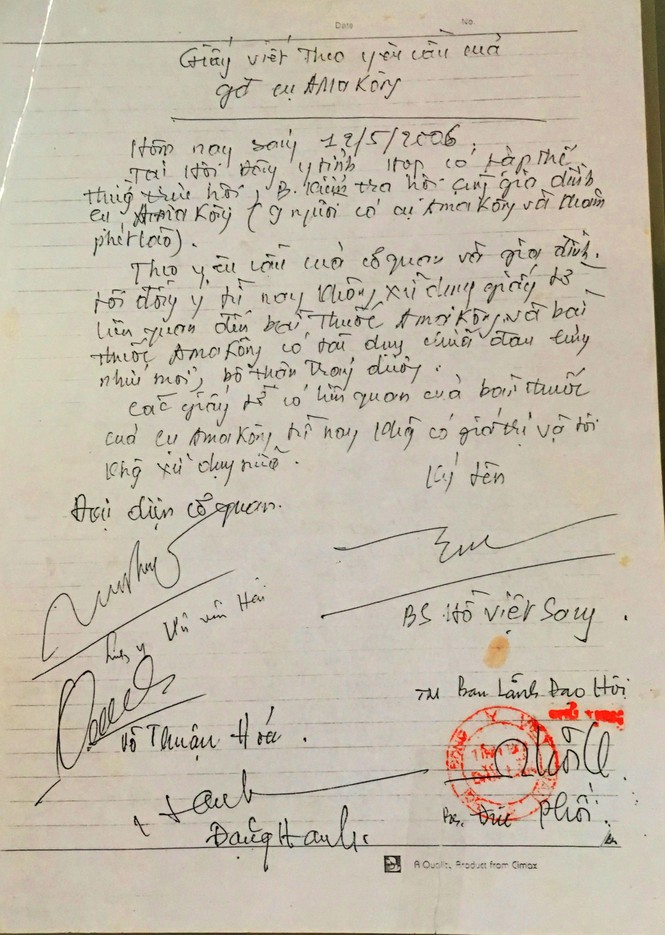 Date No.
Giấy viết Theo yêu cầu của
gđ cụ AMa Kông
Hôm nay sáng 12/5/2006,
Tại Hội Đông y tỉnh Họp có tập thể
thường trực hội, B. Kiểm tra hội cùng gia đình
cụ AMa Kông (9 người có cụ AMa Kông và tham
phét lào).
Theo yêu cầu của cơ quan và gia đình.
tôi đồng ý từ nay không xử dụng giấy tờ
liên quan đến bài Thuốc AMa Kông, và bài
thuốc AMa Kông có tác dụng chữa đau lưng
nhức mỏi, bổ thận tráng dương.
các giấy tờ có liên quan của bài thuốc
của cụ AMa Kông từ nay không có giá trị và tôi
không xử dụng nữa.
Ký tên
Đại diện cơ quan.
BS Hồ Việt Sang.
Vũ Văn Hải
TM Ban Lãnh Đạo Hội
Võ Thuận Hoá.
Phối.
Đặng Hanh.
A Quality Product from Cimax